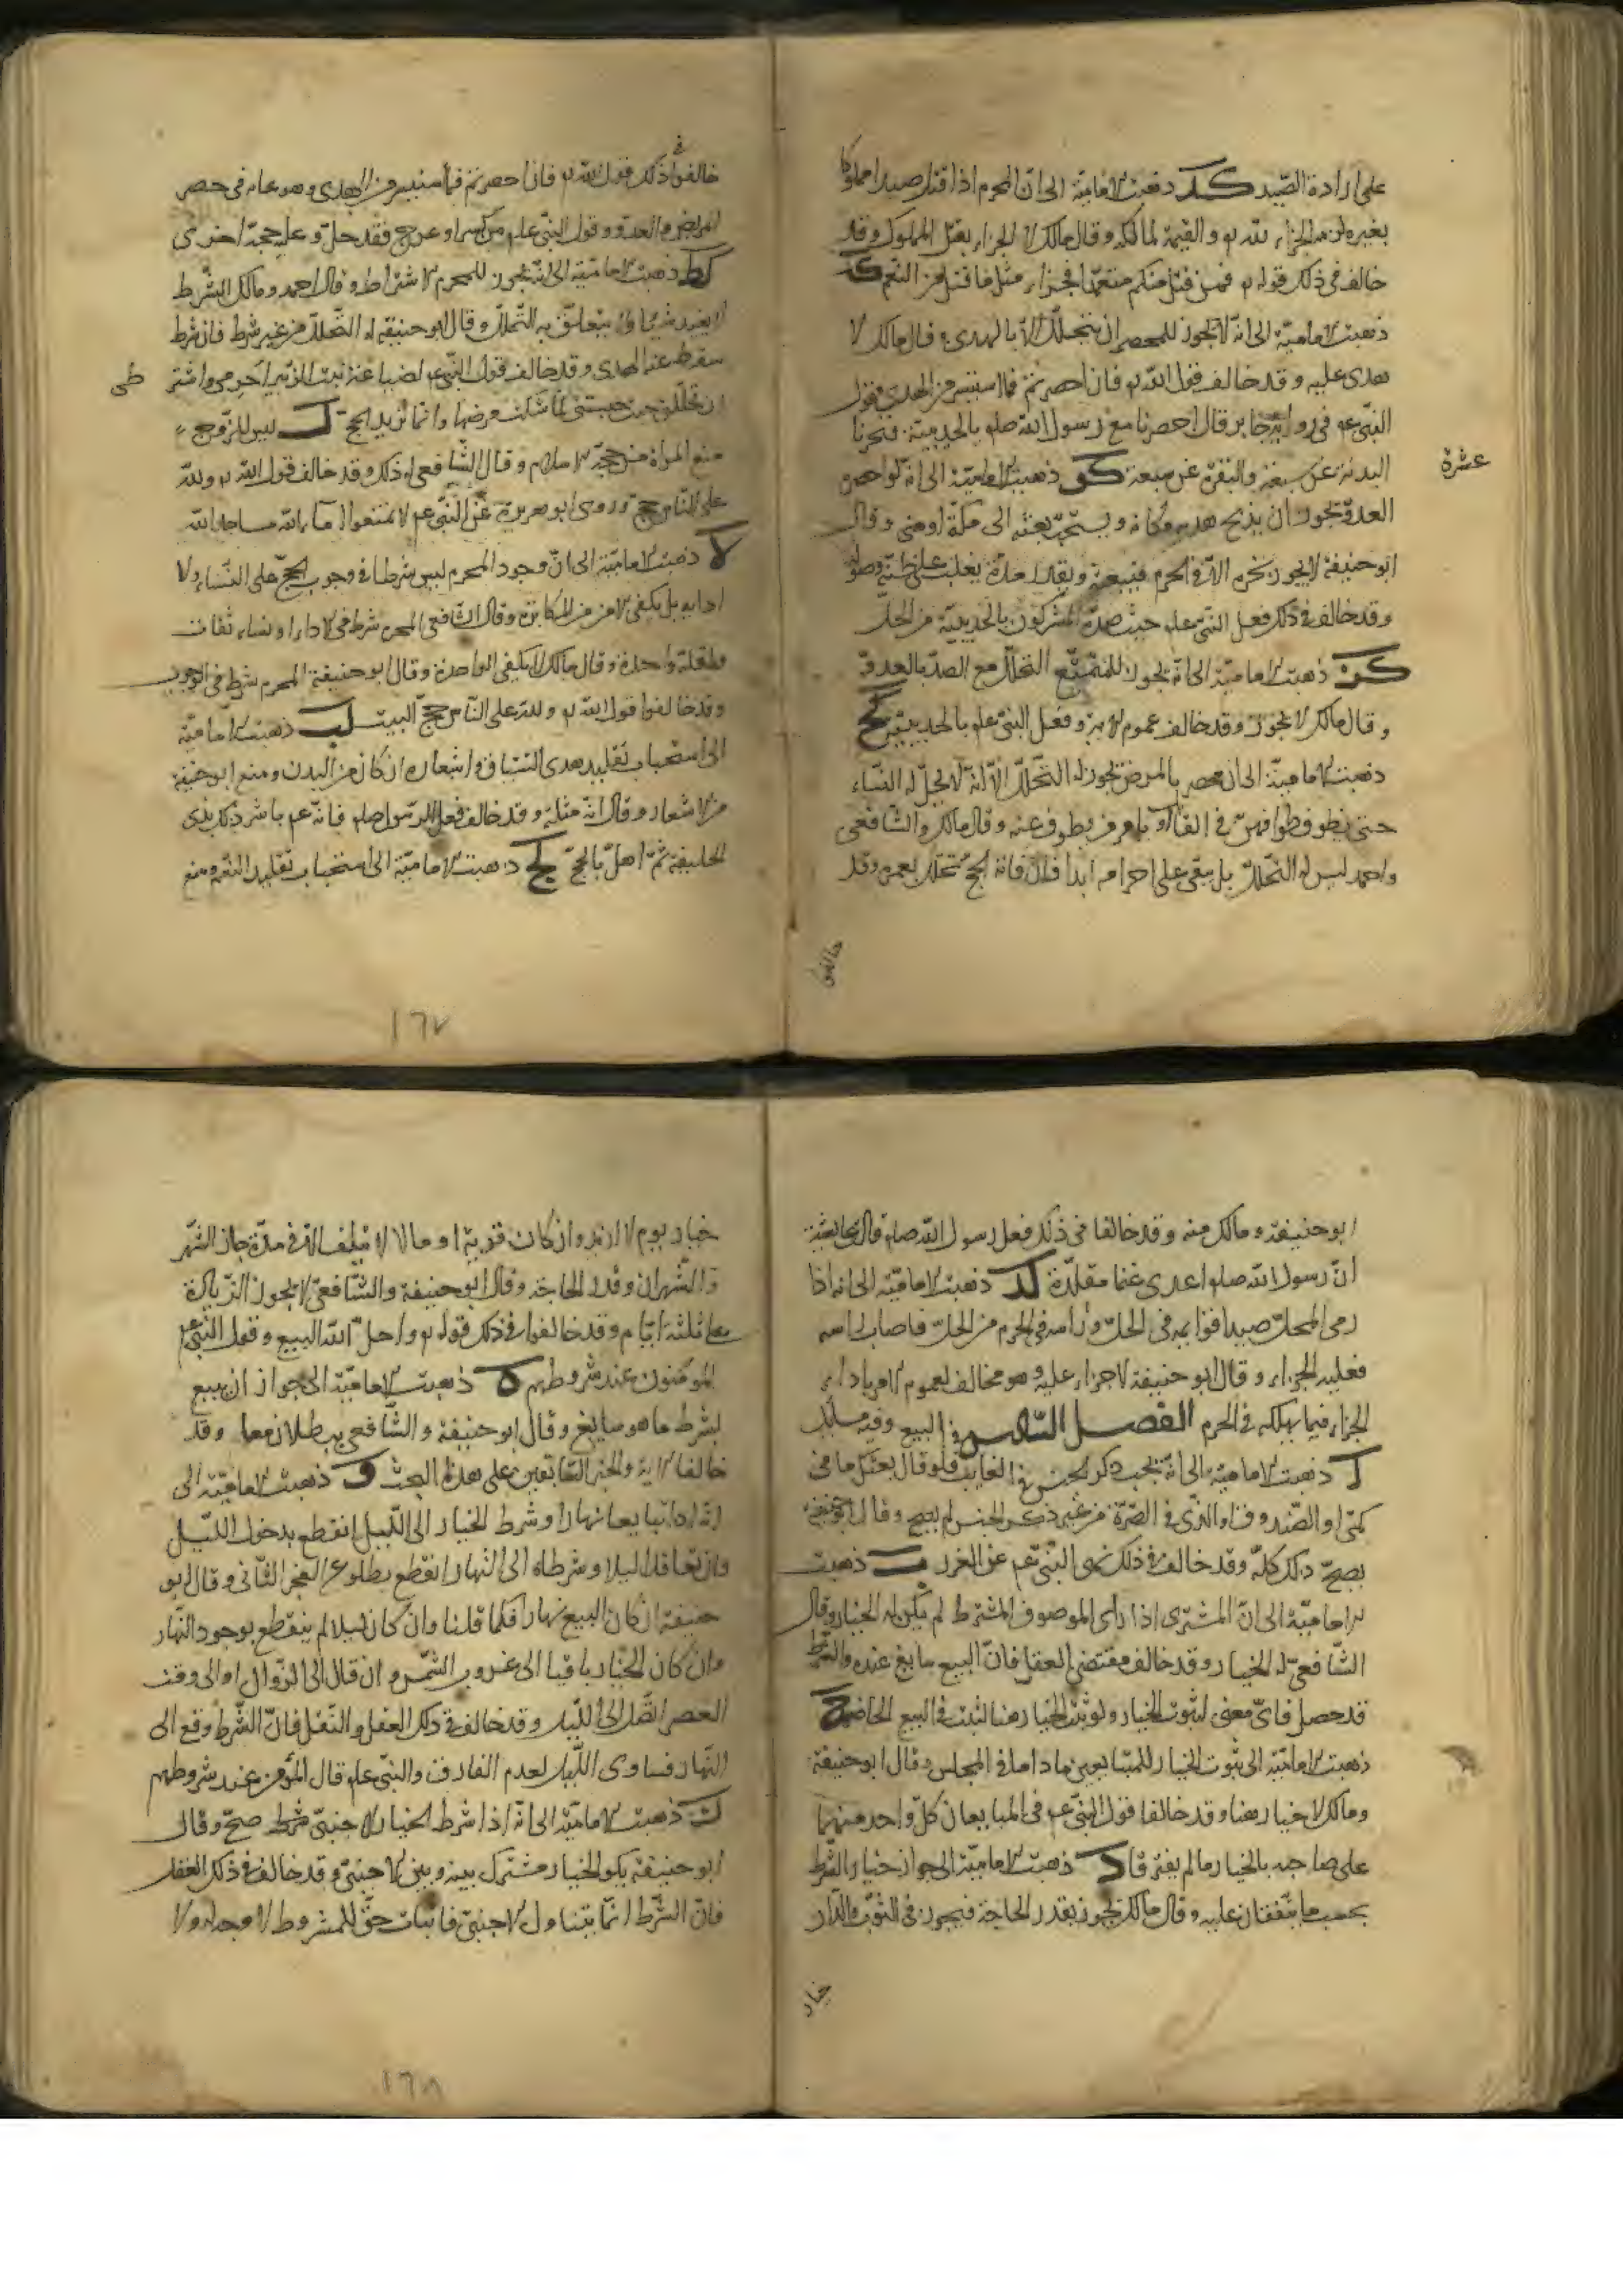 على ارادة الصّيد كد ذهبت الاماميّة الى انّ المحرم اذا قتل صيدا مملوكا
بغيره لزمه الجزاء لله تع والقيمة لمالكه وقال مالك لا الجزاء بقتل المملوك وقد
خالف في ذلك قوله تع فمن قتل منكم متعمّدا فجزاء مثل ما قتل من النّعم كه
ذهبت الاماميّة الى انّه لا يجوز للمحصر ان يتحلّل الّا بالهدى وقال مالك لا
هدى عليه وقد خالف قول الله تع فان احصرتم فما استيسر من الهدى وقول
النّبي عم في رواية جابر قال احصرنا مع رسول الله صلم بالحديبيّة فنحرنا
البدنة عن سبعة والبقرة عن سبعة كو ذهبت الاماميّة الى انّه لو احصره
عشرة
العدوّ يجوز ان يذبح هديه مكانه ويستحبّ بعثه الى مكّة او منى وقال
ابو حنيفة لا يجوز نحره الّا في الحرم فيبعثه ويقدر مدّة يغلب على ظنّه وصوله
وقد خالف في ذلك فعل النّبي علم حيث صدّه المشركون بالحديبيّة من الحلّ
كز ذهبت الاماميّة الى انّه يجوز للمتمتّع التحلّل مع الصدّ بالعدوّ
وقال مالك لا يجوز وقد خالف عموم الآية وفعل النبي علم بالحديبيّة كح
ذهبت الاماميّة الى ان المحصر بالمرض يجوز له التّحلّل الّا انّه لا يحلّ له النّساء
حتى يطوف طوافهنّ في القابل او يامر من يطوف عنه وقال مالك والشّافعي
واحمد ليس له التّحلّل بل يبقى على احرامه ابدا فان فاته الحجّ تحلّل بعمرة وقد
خالفوا
خالفوا في ذلك قول الله تع فان احصرتم فما استيسر من الهدى وهو عام في حصر
المرض والعدوّ وقول النبّي علم من كسر او عرج فقد حلّ وعليه حجّة اخرى
كط ذهبت الاماميّة الى انّه يجوز للمحرم الاشتراط وقال احمد ومالك الشّرط
لا يفيد شيئا ولا يتعلق به التّحلّل وقال ابو حنيفة له التّحلّل من غير شرط فان شرط
سقط عنه الهدى وقد خالف قول النّبي عم لضباعة بنت الزّبير احرمى واشتر
طى
ان تحلّلى حيث حبستنى لمّا شكت مرضها وانّما تريد الحجّ ل ليس للزّوج
منع المراة من حجّة الاسلام وقال الشّافعي له ذلك وقد خالف قول الله تع ولله
على النّاس حجّ وروى ابو هريرة عن النّبي عم لا تمنعوا اماء الله مساجد الله
لا ذهبت الاماميّة الى انّ وجود المحرم ليس شرطا في وجوب الحجّ على النّساء ولا
ادايه بل يكفى الامن من المكابرة وقال الشّافعي المحرم شرط في الاداء او نساء ثقات
واقلّه واحدة وقال مالك لا يكفى الواحدة وقال ابو حنيفة المحرم شرط في الوجوب
وقد خالفوا قول الله تع ولله على النّاس حجّ البيت لب ذهبت الاماميّة
الى استحباب تقليد هدى السّياق واشعاره ان كان من البدن ومنع ابو حنيفة
من الاشعار وقال انّه مثلة وقد خالف فعل الرّسول صلم فانّه عم باشر ذلك بذى
الحليفة ثمّ اهلّ بالحجّ لج ذهبت الاماميّة الى استحباب تقليد الغنم ومنع
١٦٧
ابو حنيفة ومالك منه وقد خالفا في ذلك فعل رسول الله صلم قالت عايشة
انّ رسول الله صلم اهدى غنما مقلّدة لد ذهبت الاماميّة الى انه اذا
رمى المحلّ صيدا قوايمه في الحلّ وراسه في الحرم من الحلّ فاصاب راسه
فعليه الجزاء وقال ابو حنيفة لا جزاء عليه وهو مخالف لعموم الامر باداء
الجزاء فيما يهلكه في الحرم الفصل السّادس في البيع وفيه مسائل
ا ذهبت الاماميّة الى انّه يجب ذكر الجنس في الغايب فلو قال بعتك ما في
كمّى او الصّندوق او الّذى في الصّرّة من غير ذكر الجنس لم يصحّ وقال ابو حنيفة
يصحّ ذلك كلّه وقد خالف في ذلك نهى النّبّي عم عن الغرر ب ذهبت
الاماميّة الى انّ المشترى اذا راى الموصوف المشترط لم يكن له الخيار وقال
الشّافعيّ له الخيار وقد خالف مقتضى العقل فانّ البيع سايغ عنده والشّرط
قد حصل فاىّ معنى لثبوت الخيار ولو ثبت الخيار هنا لثبت في البيع الحاضر ج
ذهبت الاماميّة الى ثبوت الخيار للمتبايعين ما داما في المجلس وقال ابو حنيفة
ومالك لا خيار هنا وقد خالفا قول النبّي عم في المتبايعان كلّ واحد منهما
على صاحبه بالخيار ما لم يفترقا د ذهبت الاماميّة الى جواز خيار الشّرط
بحسب ما يتّفقان عليه وقال مالك يجوز بقدر الحاجة فيجوز في الثوب والدّار
خيار
خيار يوم لا ازيد وان كان قرية او ما لا يقلب الّا في مدّة جاز الشّهر
والشّهران وقدر الحاجة وقال ابو حنيفة والشّافعيّ لا يجوز الزّيادة
على ثلثة ايّام وقد خالفوا في ذلك قوله تع واحلّ الله البيع وقول النّبي عم
المؤمنون عند شروطهم ه ذهبت الاماميّة الى جواز ان يبيع
بشرط ما هو سايغ وقال ابو حنيفة والشّافعي يبطلان معا وقد
خالفا الاية والخبر السّابقين على هذا البحث و ذهبت الاماميّة الى
انّه اذا تبايعا نهارا وشرط الخيار الى اللّيل انقطع بدخول اللّيل
وان تعاقدا ليلا وشرطاه الى النّهار انقطع بطلوع الفجر الثّانى وقال ابو
حنيفة ان كان البيع نهارا فكما قلنا وان كان ليلا لم ينقطع بوجود النّهار
وان كان الخيار باقيا الى غروب الشّمس وان قال الى الزّوال او الى وقت
العصر اتّصل الى اللّيل وقد خالف في ذلك العقل والنّقل فانّ الشّرط وقع الى
النّهار فساوى اللّيل لعدم الفارق والنّبي علم قال المؤمنون عند شروطهم
ز ذهبت الاماميّة الى انّه اذا شرط الخيار لاجنبىّ صحّ وقال
ابو حنيفة يكون الخيار مشترك بينه وبين الاجنبىّ وقد خالف في ذلك العقل
فانّ الشّرط انّما يتناول الاجنبىّ فاثبات حقّ للمشروط لا وجه له ولا
١٦٨